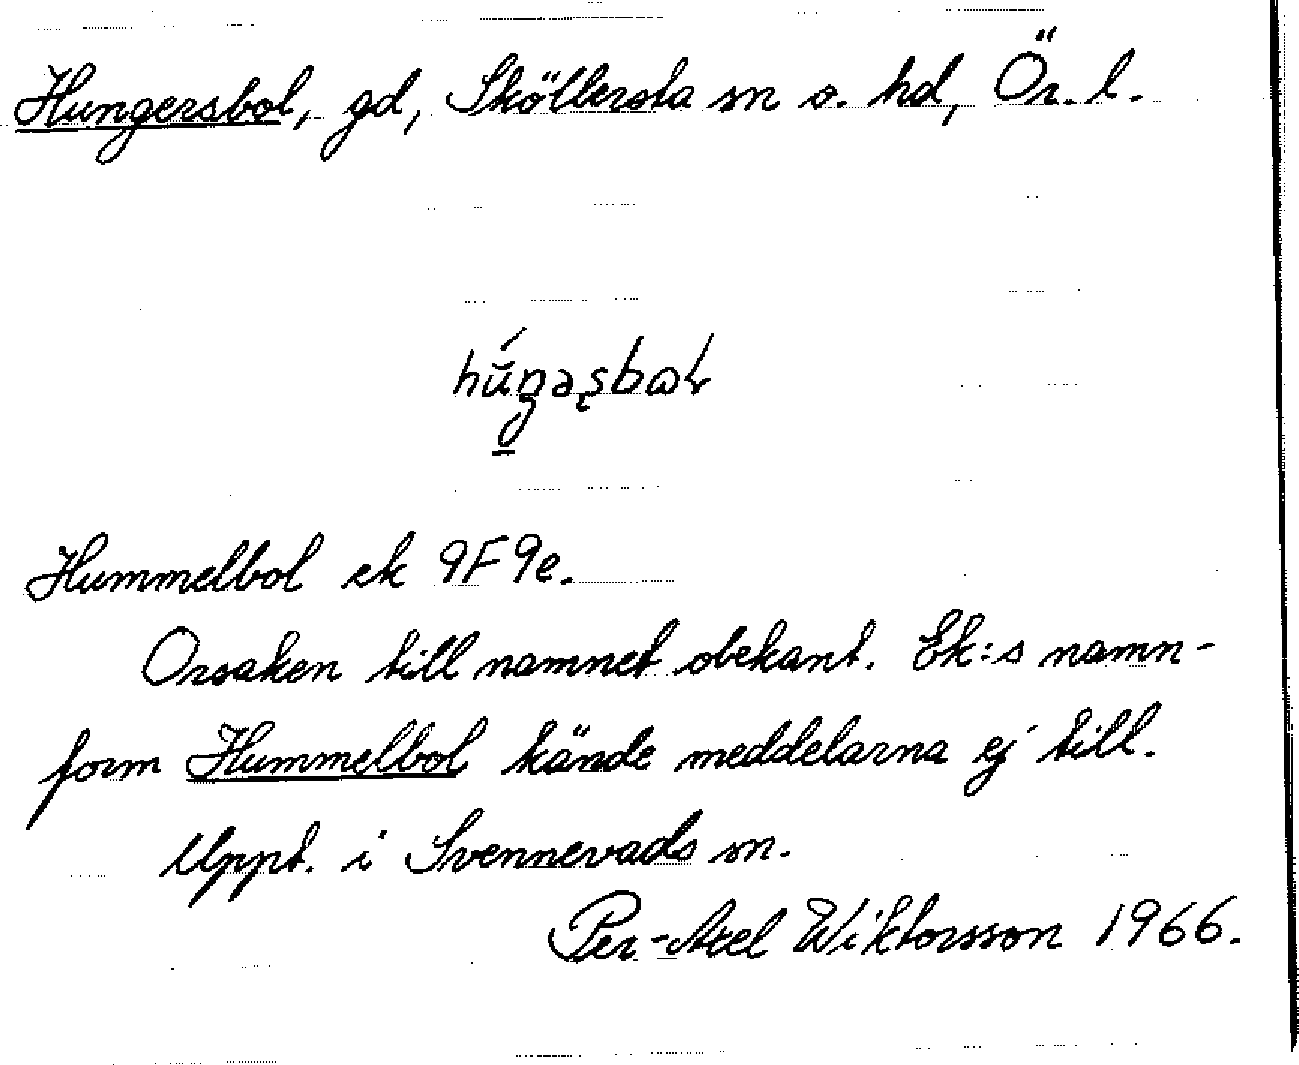 Hungersbol, gd, Sköllersta sn o. hd, Ör. l.
Hummelbol ek 9F9e.
Orsaken till namnet obekant. Ek:s namn-
form Hummelbol kände meddelarna ej till.
Uppt. i Svennevads sn.
Per-Axel Wiktorsson 1966.